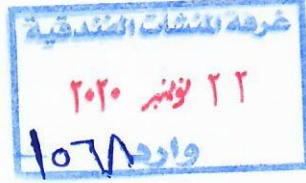 غرفة المنشآت الفندقية
٢٢ نوفمبر ٢٠٢٠
وارد ١٥٦٨